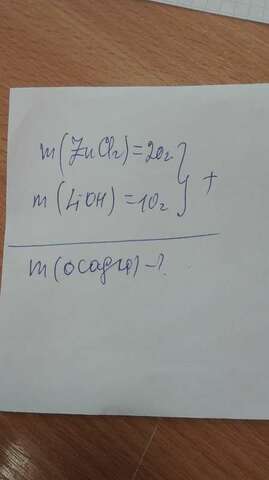 m(ZnCl₂)=20г
m(LiOH)=10г } +
m(осадка)-?